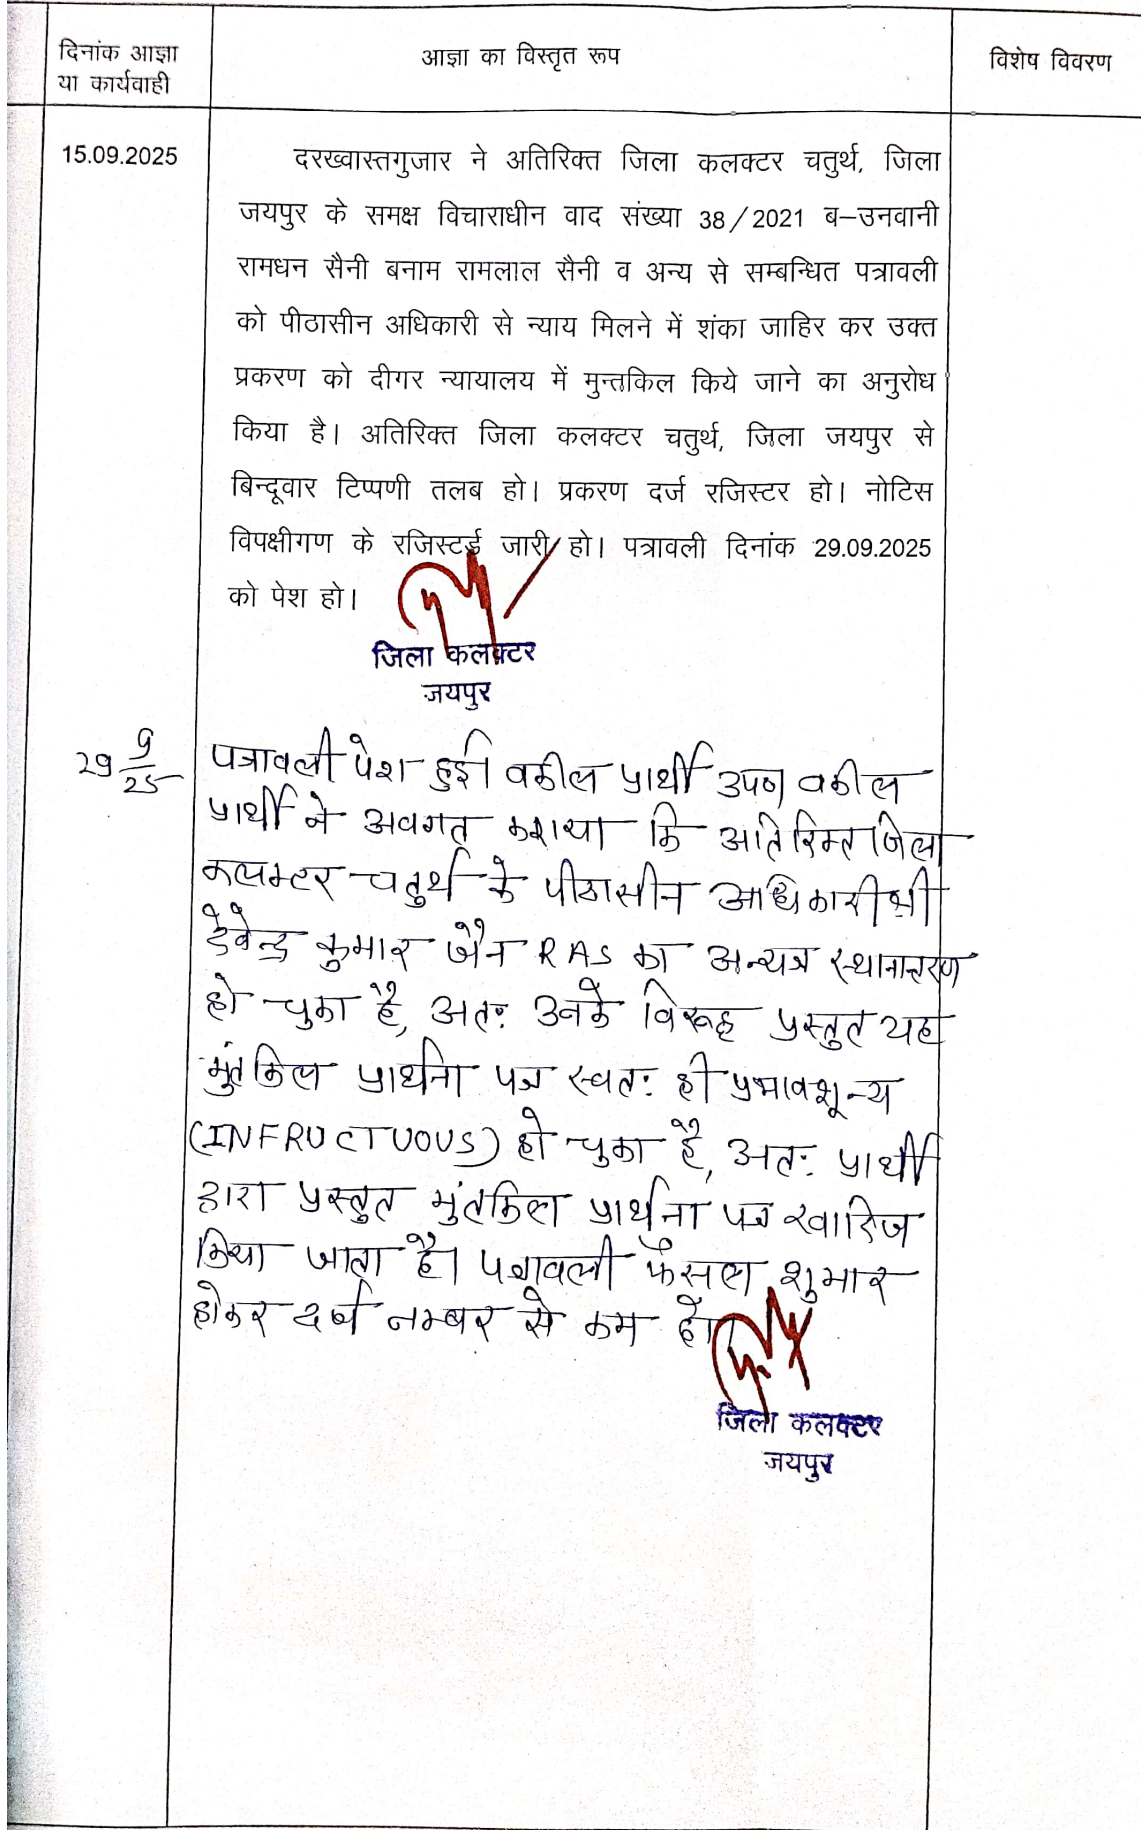 दिनांक आज्ञा
या कार्यवाही
आज्ञा का विस्तृत रूप
विशेष विवरण
15.09.2025
दरख्वास्तगुजार ने अतिरिक्त जिला कलक्टर चतुर्थ, जिला
जयपुर के समक्ष विचाराधीन वाद संख्या 38/2021 ब–उनवानी
रामधन सैनी बनाम रामलाल सैनी व अन्य से सम्बन्धित पत्रावली
को पीठासीन अधिकारी से न्याय मिलने में शंका जाहिर कर उक्त
प्रकरण को दीगर न्यायालय में मुन्तकिल किये जाने का अनुरोध
किया है। अतिरिक्त जिला कलक्टर चतुर्थ, जिला जयपुर से
बिन्दूवार टिप्पणी तलब हो। प्रकरण दर्ज रजिस्टर हो। नोटिस
विपक्षीगण के रजिस्टर्ड जारी हो। पत्रावली दिनांक 29.09.2025
को पेश हो।
जिला कलक्टर
जयपुर
29 9/25
पत्रावली पेश हुई। वकील प्रार्थी उप० वकील
प्रार्थी ने अवगत कराया कि अतिरिक्त जिला
कलक्टर चतुर्थ के पीठासीन अधिकारी श्री
देवेन्द्र कुमार जैन RAS का अन्यत्र स्थानान्तरण
हो चुका है, अतः उनके विरूद्ध प्रस्तुत यह
मुंतकिल प्रार्थना पत्र स्वतः ही प्रभावशून्य
(INFRUCTUOUS) हो चुका है, अतः प्रार्थी
द्वारा प्रस्तुत मुंतकिल प्रार्थना पत्र खारिज
किया जाता है। पत्रावली फैसल शुमार
होकर दर्ज नम्बर से कम हो।
जिला कलक्टर
जयपुर